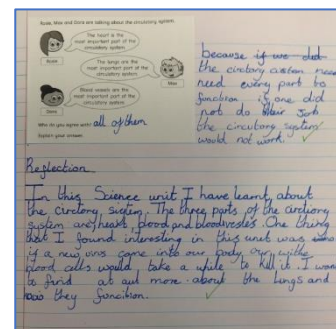 Rosie, Max and Dora are talking about the circulatory system.
The heart is the
most important part of the
circulatory system.
Rosie
The lungs are the
most important part of the
circulatory system.
Max
Blood vessels are the
most important part of the
circulatory system.
Dora
Who do you agree with? all of them
Explain your answer.
because if we did
the circtory custom need
need every part to
function if one did
not do their job
the circultory system
would not work.
Reflection
In this Science unit I have learnt about
the circtory system. The three parts of the circtiory
system are heart, blood and bloodvesles. One thing
that I found interesting in this unit was
if a new virus came into our body our withe
blood cells would take a while to kill it. I want
to find at out more about the lungs and
how they funcition.